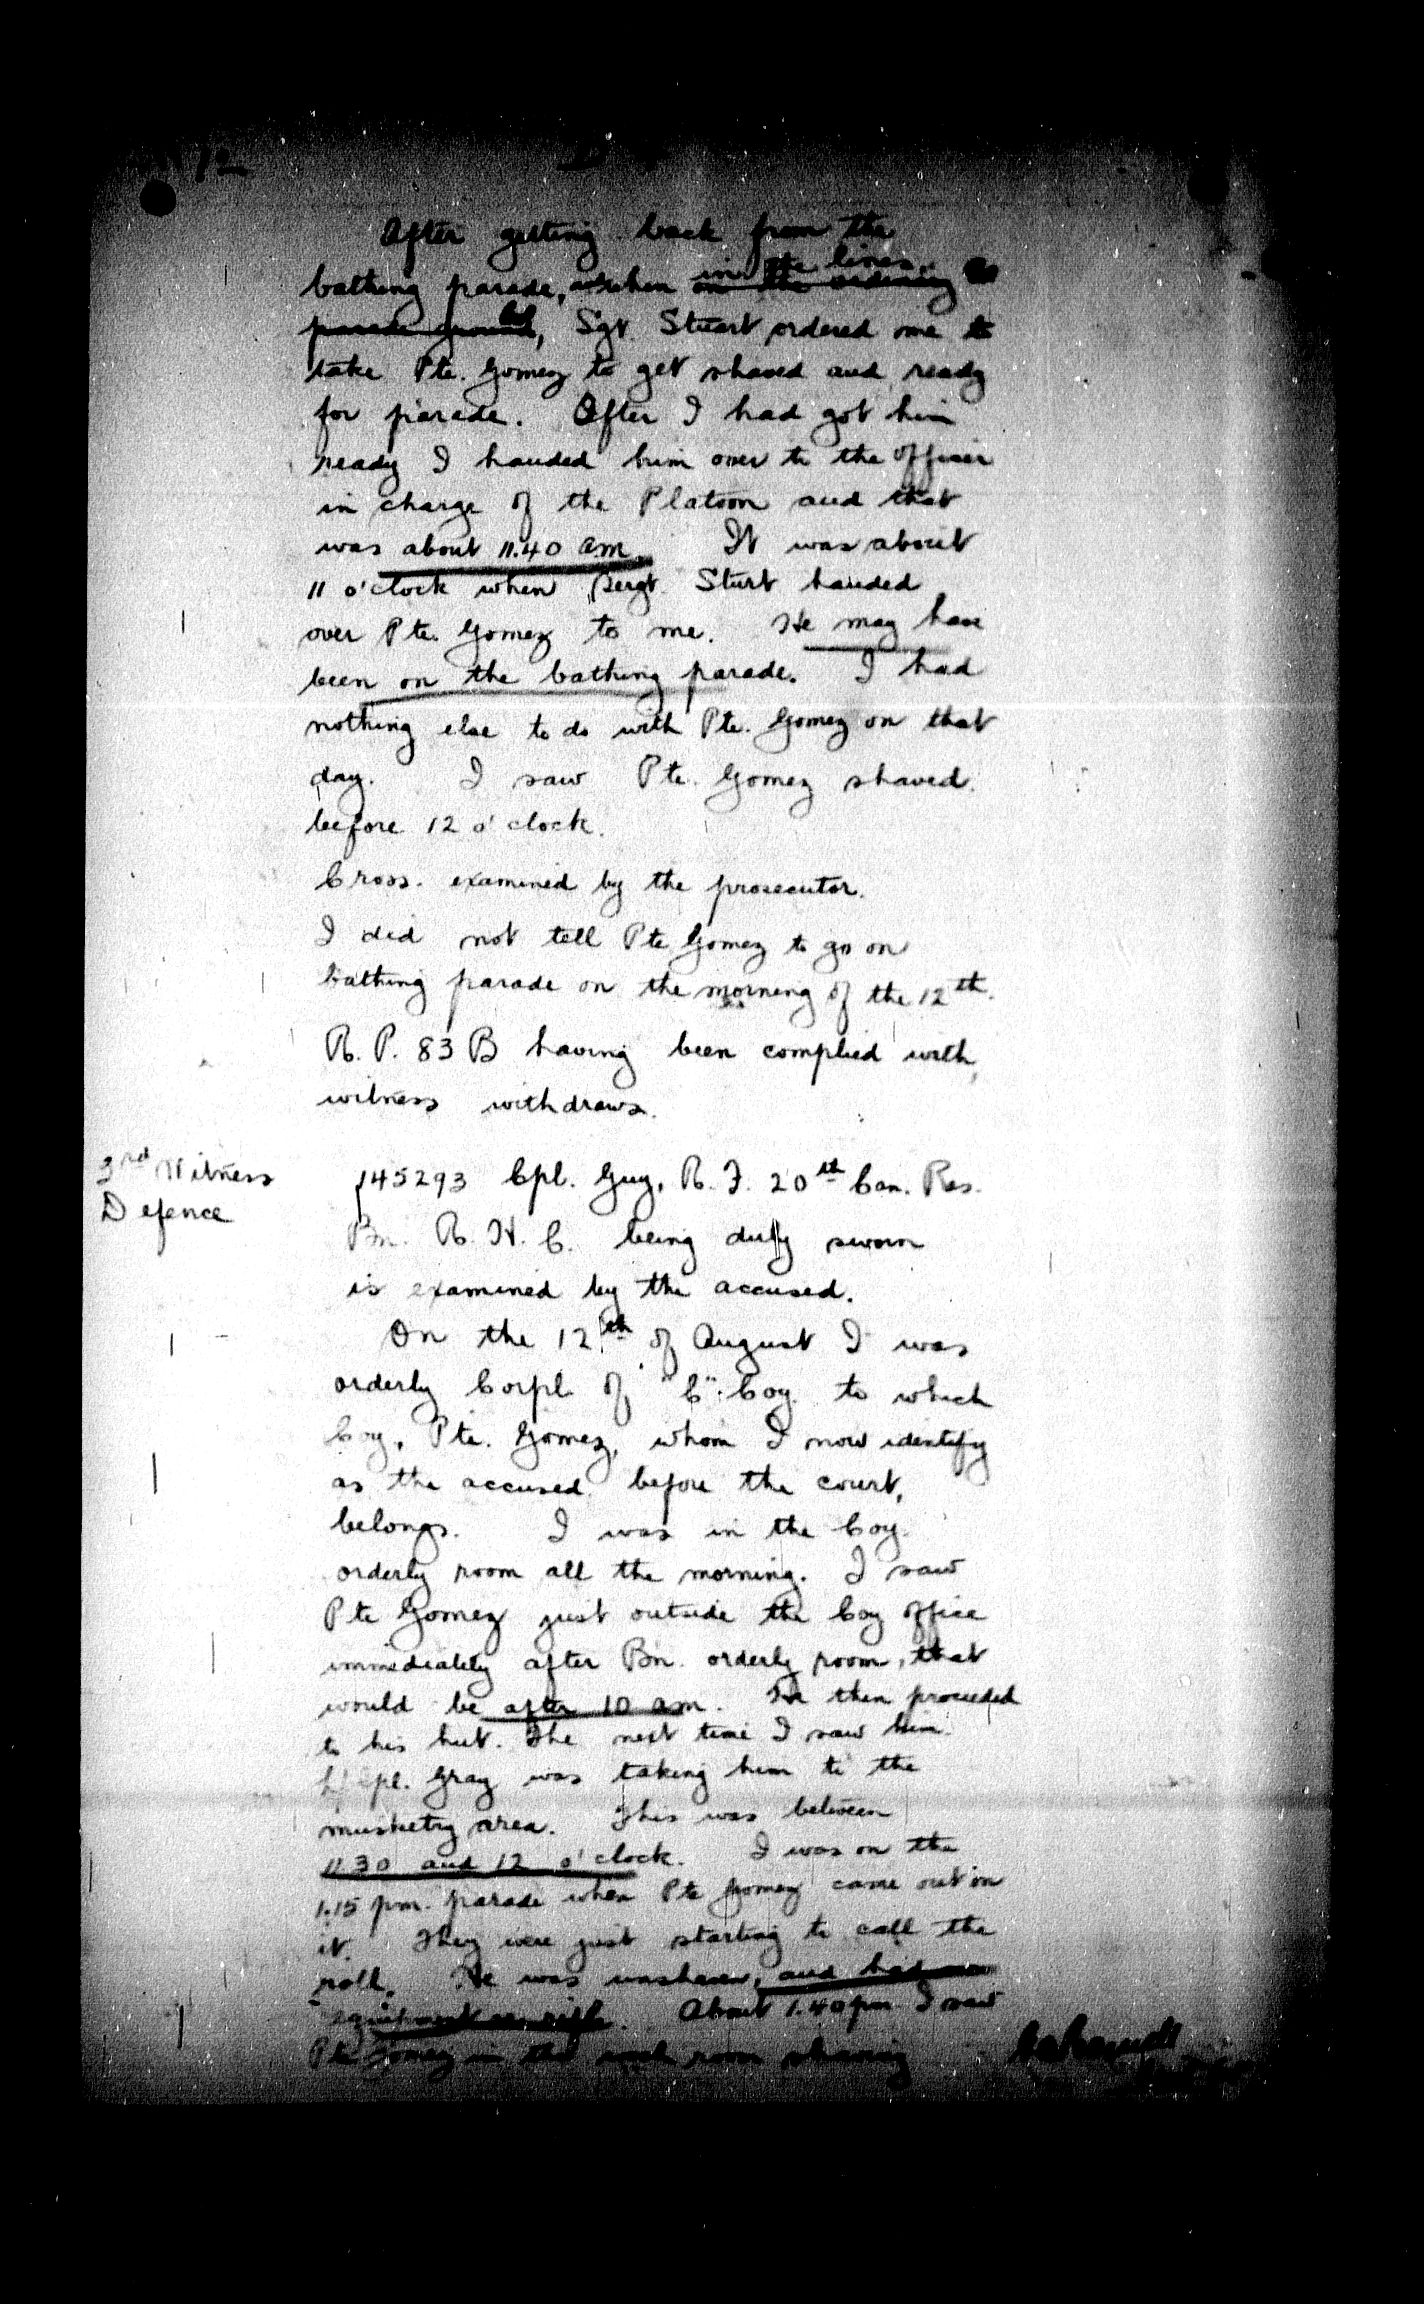 12
After getting back from the
bathing parade, when in the lines,
on the ordinary
parade ground, Sgt. Stuart ordered me to
take Pte. Gomez to get shaved and ready
for parade. After I had got him
ready I handed him over to the officer
in charge of the Platoon and that
was about 11.40 am. It was about
11 o'clock when Sergt. Sturt handed
over Pte. Gomez to me. He may have
been on the bathing parade. I had
nothing else to do with Pte. Gomez on that
day. I saw Pte. Gomez shaved
before 12 o'clock.
Cross. examined by the prosecutor.
I did not tell Pte Gomez to go on
bathing parade on the morning of the 12th.
R. P. 83 B having been complied with,
witness withdraws.
3rd Witness
Defence
145293 Cpl. Guy, R. F. 20th Can. Res.
Bn. R. H. C. being duly sworn
is examined by the accused.
On the 12th of August I was
orderly Corpl. of "C" Coy. to which
Coy, Pte. Gomez, whom I now identify
as the accused before the court,
belongs. I was in the Coy.
orderly room all the morning. I saw
Pte Gomez just outside the Coy office
immediately after Bn. orderly room, that
would be after 10 am. He then proceeded
to his hut. The next time I saw him
L/Cpl. Gray was taking him to the
musketry area. This was between
11.30 and 12 o'clock. I was on the
1.15 pm. parade when Pte Gomez came out on
it. They were just starting to call the
roll. He was unshaven, and had no
equipment or rifle. About 1.40 pm I saw
Pte Gomez in the wash room shaving